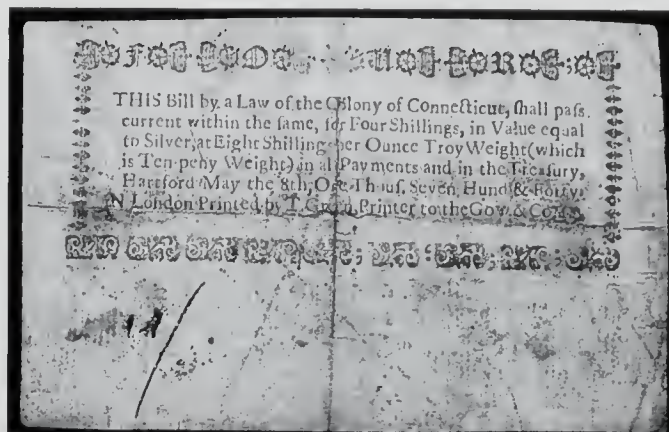 THIS Bill by a Law of the Colony of Connecticut, ſhall paſs
current within the ſame, for Four Shillings, in Value equal
to Silver, at Eight Shillings per Ounce Troy Weight (which
is Ten-peny Weight) in all Payments and in the Treaſury,
Hartford May the 8th, One Thouſ. Seven Hund. & Forty.
N London Printed by T. Green Printer to the Gov. &